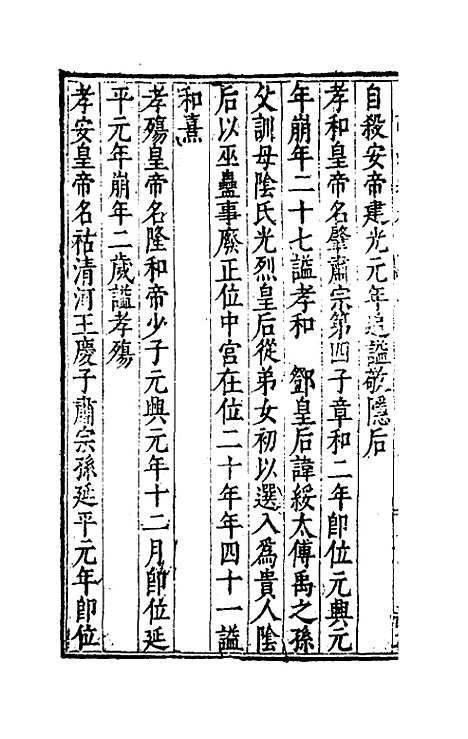 自殺安帝建光元年追謚敬隱后
孝和皇帝名肇肅宗第四子章和二年即位元興元
年崩年二十七謚孝和　鄧皇后諱綏太傅禹之孫
父訓母陰氏光烈皇后從弟女初以選入爲貴人陰
后以巫蠱事廢正位中宮在位二十年年四十一謚
和熹
孝殤皇帝名隆和帝少子元興元年十二月即位延
平元年崩年二歲謚孝殤
孝安皇帝名祜清河王慶子肅宗孫延平元年即位